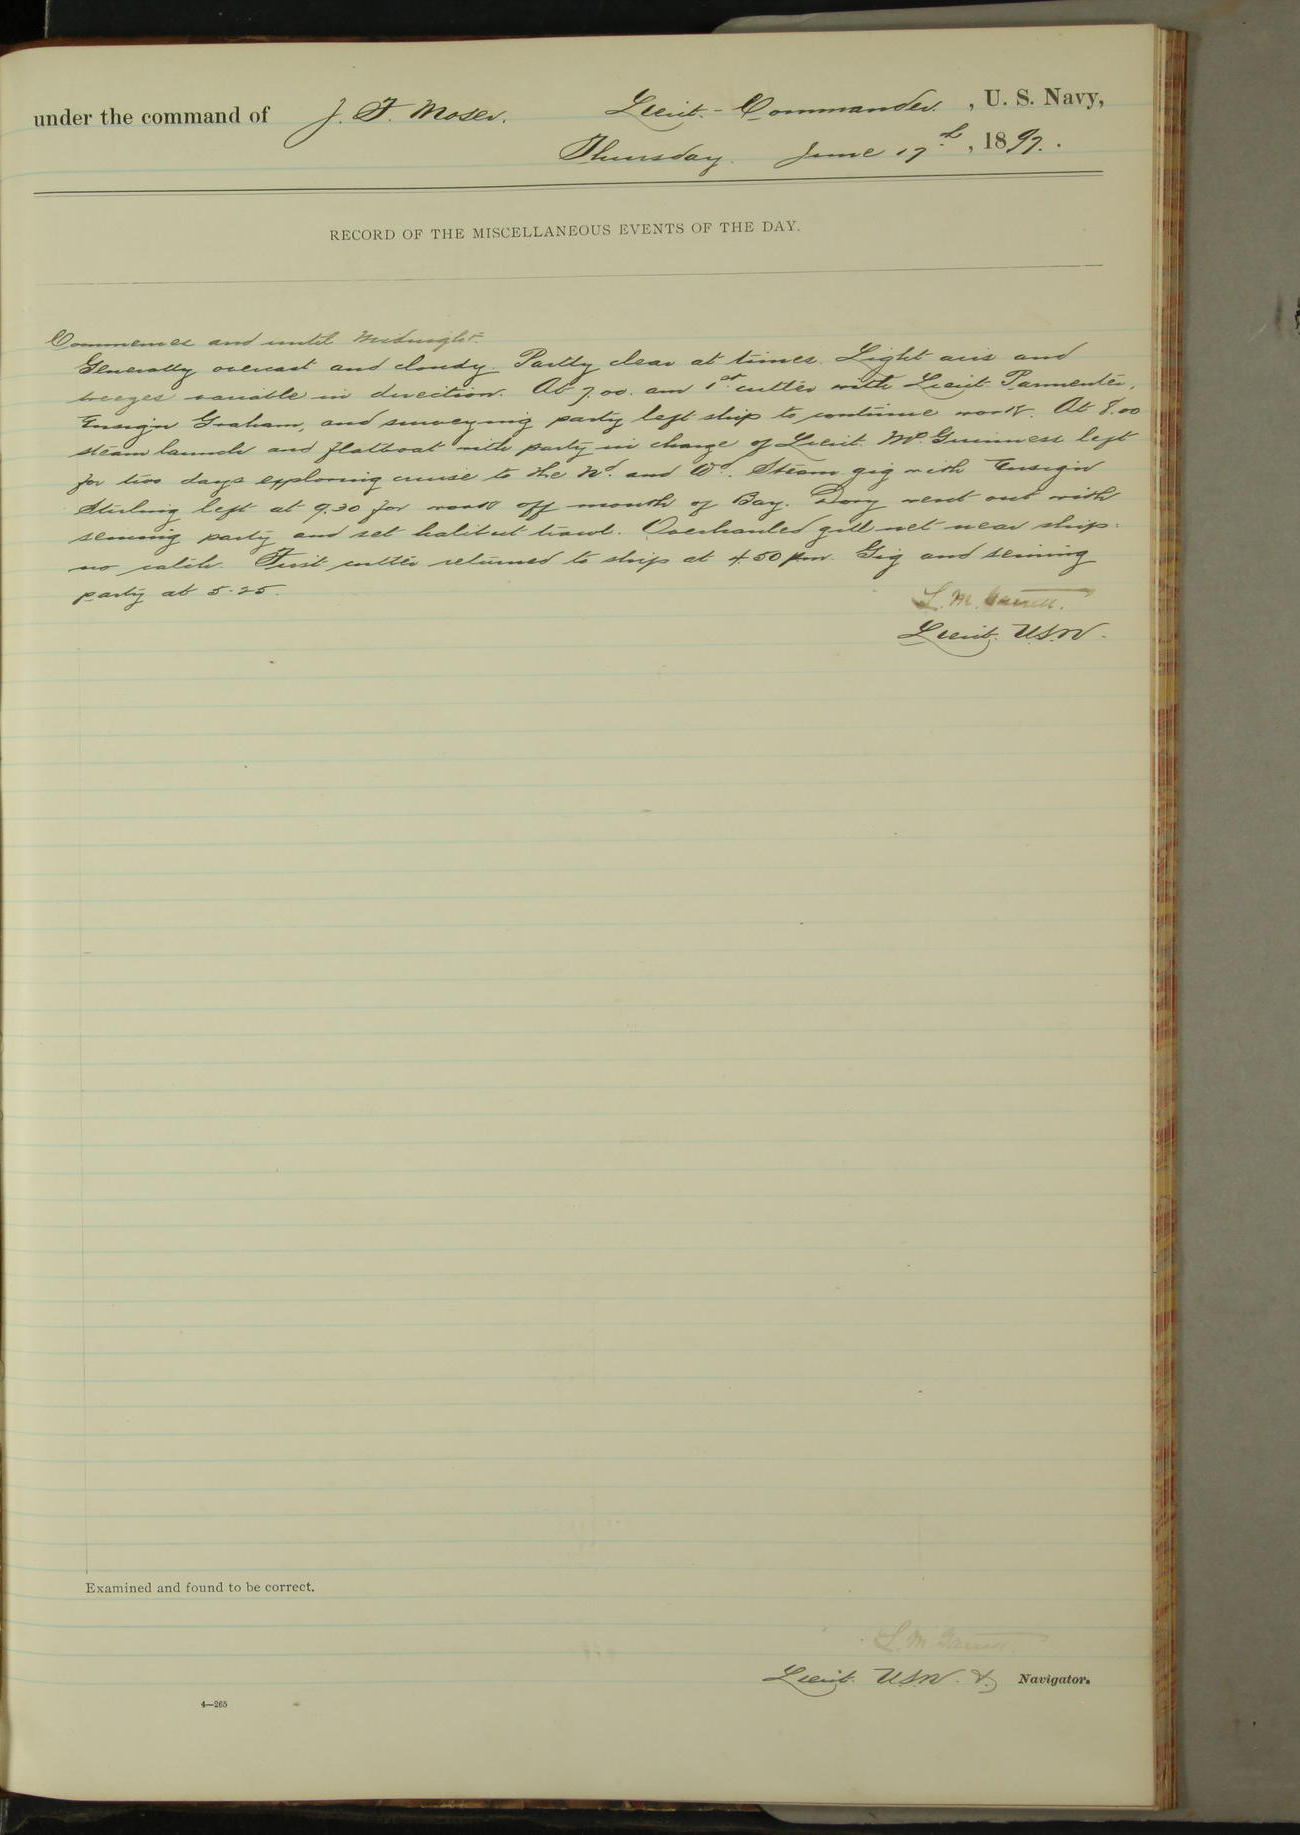 under the command of J. F. Moser. Lieut.-Commander. , U. S. Navy,
Thursday. June 17th. , 1897. .
RECORD OF THE MISCELLANEOUS EVENTS OF THE DAY.
Commences and until Midnight.
Generally overcast and cloudy. Partly clear at times. Light airs and
breezes variable in direction. At 7.00. am 1st cutter with Lieut. Parmenter,
Ensign Graham, and surveying party left ship to continue work. At 8.00
steam launch and flatboat with party in charge of Lieut. McGuinness left
for two days exploring cruise to the Nd. and Wd. Steam gig with Ensign
Stirling left at 9.30 for work off mouth of Bay. Dory went out with
seining party and set halibut trawl. Overhauled gill net near ship:
no catch. First cutter returned to ship at 4.50 pm. Gig and seining
party at 5.25.
L. M. Garrett.
Lieut. U.S.N.
Examined and found to be correct.
L. M. Garrett.
Lieut. U.S.N. & Navigator.
4—265